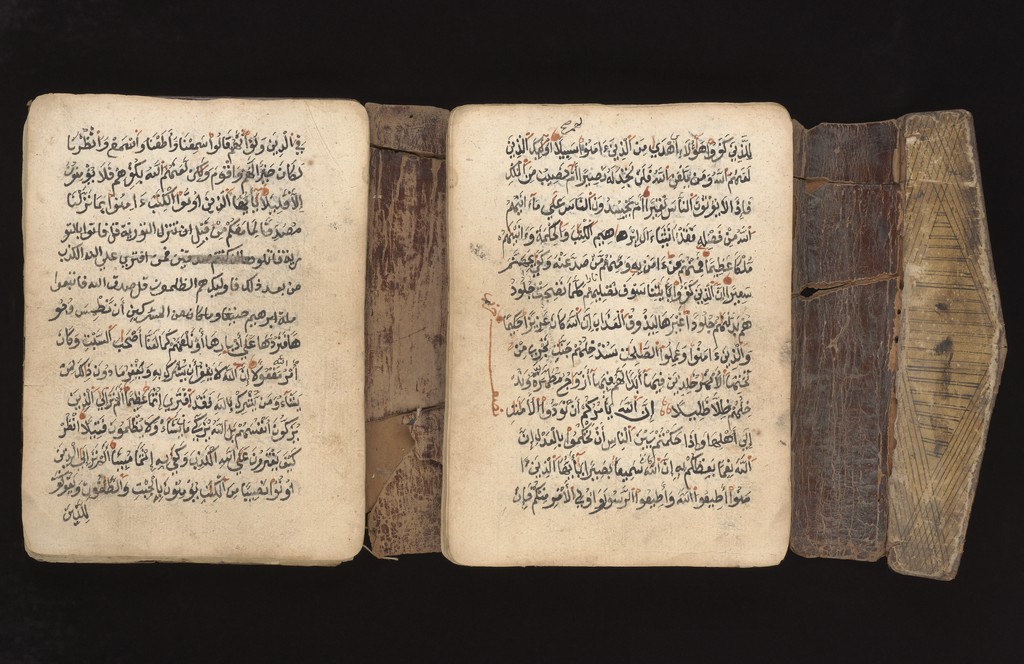 في الدين ولو أنهم قالوا سمعنا وأطعنا واسمع وانظرنا
لكان خيرا لهم وأقوم ولكن لعنهم الله بكفرهم فلا يومنون
إلا قليلا يأيها الذين أوتوا الكتب ءامنوا بما نزلنا
مصدقا لما معكم من قبل ان تنزل التورية قل فاتوا بالتو
رية فاتلوها ان كنتم صدقين فمن افترى على الله الكذب
من بعد ذلك فاوليك هم الظلمون قل صدق الله فاتبعوا
ملة ابرهيم حنيفا وما كان من المشركين أن نطمس وجو
ها فنردها على أدبارها أو نلعنهم كما لعنا أصحب السبت وكان
أمر الله مفعولا إن الله لا يغفر أن يشرك به ويغفر ما دون ذلك لمن
يشاء ومن يشرك بالله فقد افترى إثما عظيما ألم تر إلى الذين
يزكون أنفسهم بل الله يزكي من يشاء ولا يظلمون فتيلا انظر
كيف يفترون على الله الكذب وكفى به إثما مبينا ألم تر إلى الذين
أوتوا نصيبا من الكتب يومنون بالجبت والطغوت ويقولون
للذين
للذين كفروا هؤلاء أهدى من الذين ءامنوا سبيلا أوليك الذين
لعنهم الله ومن يلعن الله فلن تجد له نصيرا أم لهم نصيب من الملك
فإذا لا يوتون الناس نقيرا أم يحسدون الناس على ما ءاتيهم
الله من فضله فقد ءاتينا ءال إبرهيم الكتب والحكمة وءاتينهم
ملكا عظيما فمنهم من ءامن به ومنهم من صد عنه وكفى بجهنم
سعيرا إن الذين كفروا بئايتنا سوف نصليهم نارا كلما نضجت جلود
هم بدلنهم جلودا غيرها ليذوقوا العذاب إن الله كان عزيزا حكيما
والذين ءامنوا وعملوا الصلحت سندخلهم جنت تجري من
تحتها الأنهر خلدين فيها أبدا لهم فيها أزوج مطهرة وند
خلهم ظلا ظليلا إن الله يأمركم أن تودوا الأمنت
إلى أهلها وإذا حكمتم بين الناس أن تحكموا بالعدل إن
الله نعما يعظكم به إن الله كان سميعا بصيرا يأيها الذين ءا
منوا أطيعوا الله وأطيعوا الرسول وأولي الأمر منكم فإن